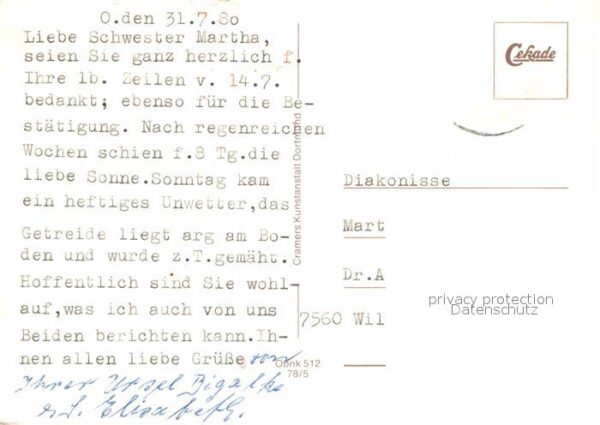 O.den 31.7.80
Liebe Schwester Martha,
seien Sie ganz herzlich f.
Ihre lb. Zeilen v. 14.7.
bedankt; ebenso für die Be-
stätigung. Nach regenreichen
Wochen schien f.8 Tg.die
liebe Sonne.Sonntag kam
ein heftiges Unwetter,das
Getreide liegt arg am Bo-
den und wurde z.T.gemäht.
Hoffentlich sind Sie wohl-
auf,was ich auch von uns
Beiden berichten kann.Ih-
nen allen liebe Grüße von
Ihrer Ursel Bigalke
u. S. Elisabeth.
Cramers Kunstanstalt Dortmund
Obrik 512
78/5
Cekade
Diakonisse
Mart
Dr.A
7560 Wil
privacy protection
Datenschutz